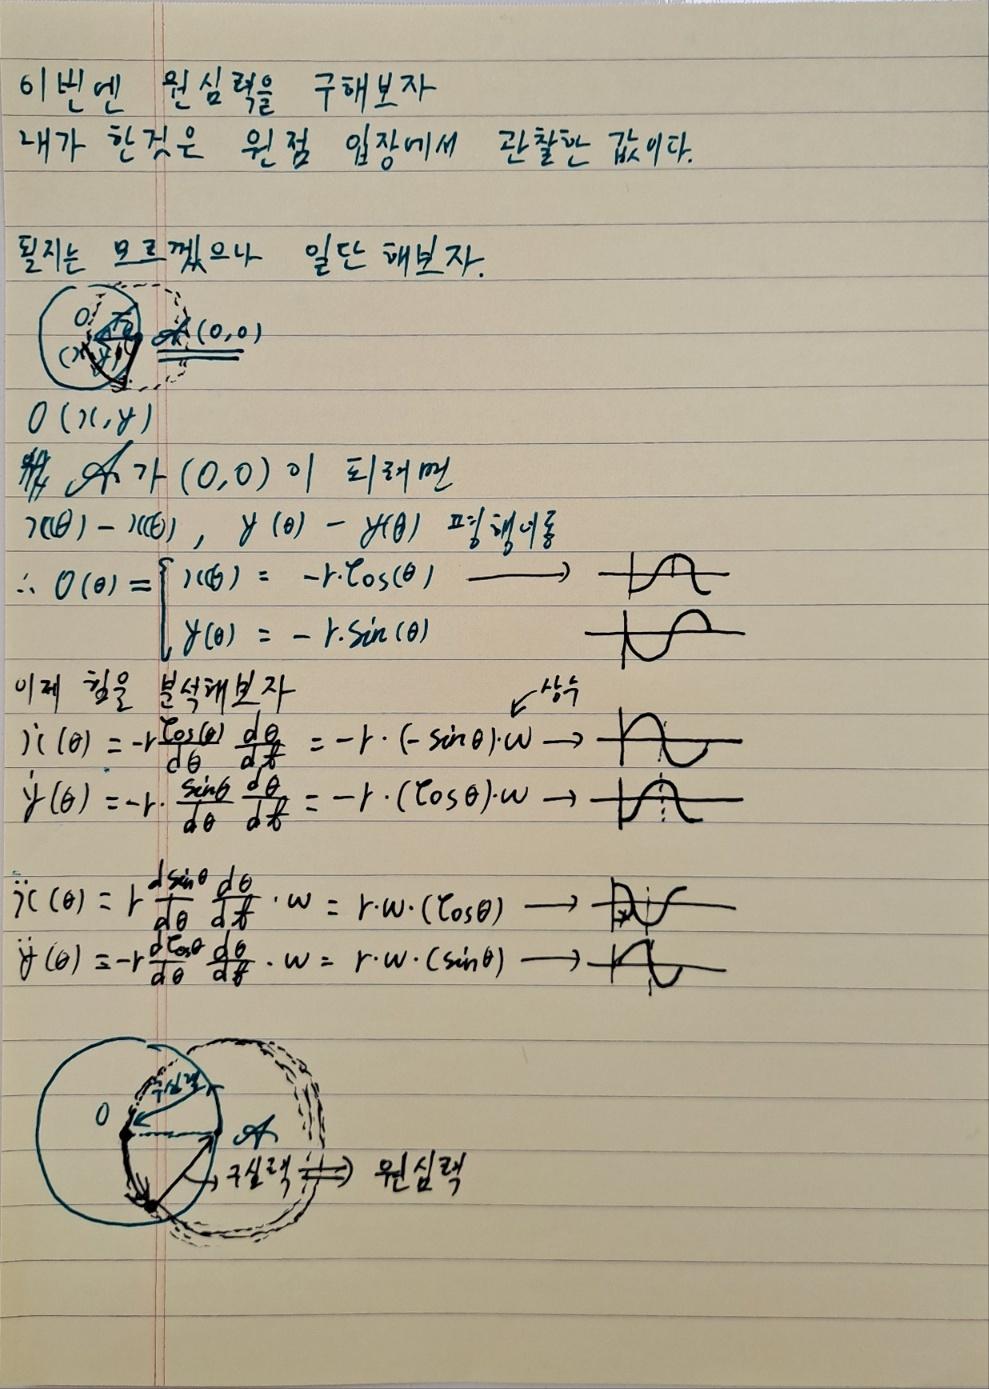 이번엔 원심력을 구해보자
내가 한것은 원점 입장에서 관찰한 값이다.
될지는 모르겠으나 일단 해보자.
O
(x,y)
A (0,0)
O(x,y)
A가 (0,0)이 되려면
x(θ) - x(θ), y(θ) - y(θ) 평행이동
∴ O(θ) = { x(θ) = -r·cos(θ) →
y(θ) = -r·sin(θ)
이제 힘을 분석해보자
상수
ẋ(θ) = -r cos(θ)/dθ dθ/dt = -r·(-sinθ)·w →
ẏ(θ) = -r· sinθ/dθ dθ/dt = -r·(cosθ)·w →
ẍ(θ) = r dsinθ/dθ dθ/dt · w = r·w·(cosθ) →
ÿ(θ) = -r dcosθ/dθ dθ/dt · w = r·w·(sinθ) →
구심력
O
A
구심력 ⇒ 원심력